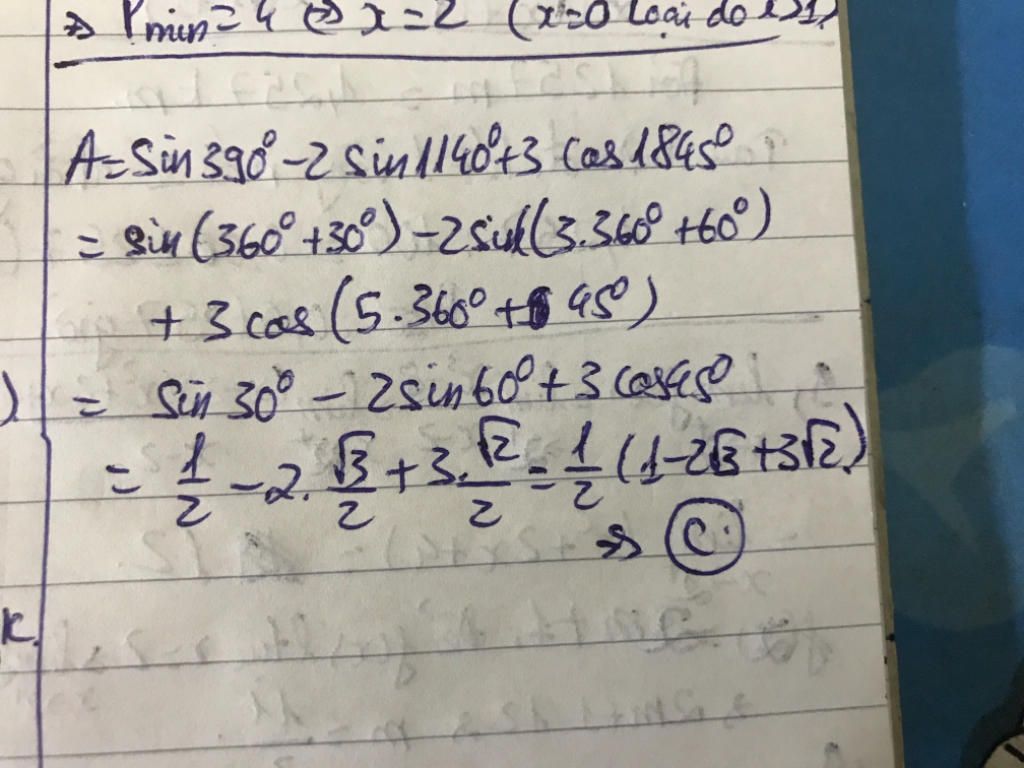 ⇒ Pmin = 4 ⇔ x = 2 (x=0 loại do x>1)
A = sin 390° - 2 sin 1140° + 3 cos 1845°
= sin (360° + 30°) - 2 sin (3.360° + 60°)
+ 3 cos (5.360° + 45°)
= sin 30° - 2 sin 60° + 3 cos 45°
= 1/2 - 2. √3/2 + 3. √2/2 = 1/2 (1 - 2√3 + 3√2)
⇒ C
k.